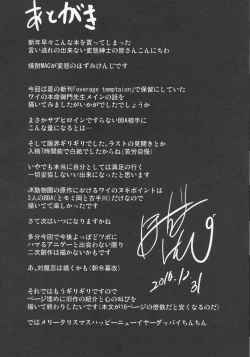 あとがき
新年早々こんな本を買ってしまった
言い逃れの出来ない変態紳士の皆さんこんにちわ
焼酎MACが変態のほずみけんじです
今回は夏の新刊「overage temptaion」で保留にしていた
ワイの本命御門先生メインの話を
描いてみましたがいかがでしたでしょうか
まさかサブヒロインですらないBBA相手に
こんな量になるとは…
そして限界ギリギリでした、ラストの見開きとか
入稿1時間前で白紙でしたからね(苦労自慢)
いやでも本当に自分としては満足の行く
一切妥協しない出来になったと思います
JK動物園の原作におけるワイのヌキポイントは
3人のBBA(とモミ岡と古手川)だけなので
描けてて楽しかったです
さて次はいつになりますかね
多分今回で今後よっぽどツボに
ハマるアニゲーと出会わない限り
二次創作は描かないかもです
あ、対魔忍は描くかも(朝令暮改)
それではもうギリギリですので
ページ埋めに旧作の紹介と心の叫びを
描いて終わりたいです(本文が16ページの倍数だと安くなるのだ)
ではメリークリスマスハッピーニューイヤーグッバイちんちん
2016.12.31